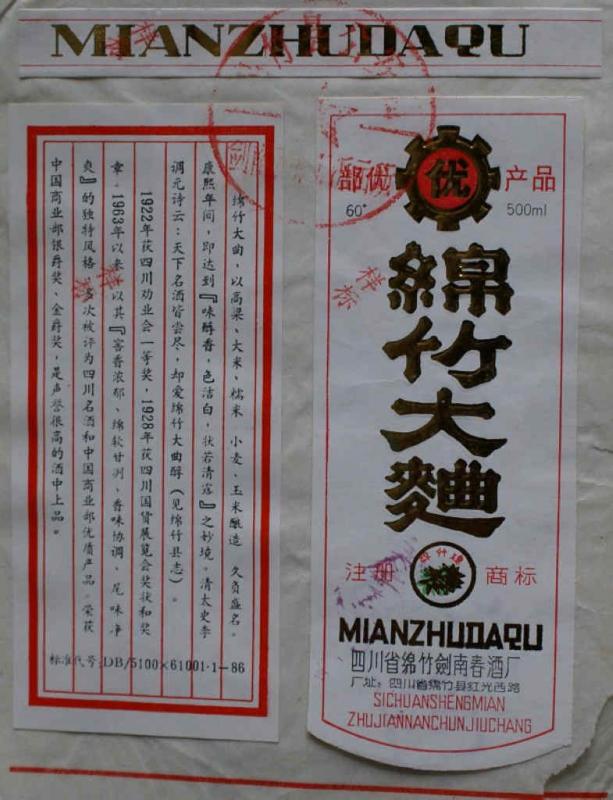 MIANZHUDAQU
绵竹大曲，以高粱、大米、糯米、小麦、玉米酿造，久负盛名。
康熙年间，即达到『味醇香，色洁白，状若清露』之妙境。清太史李
调元诗云：天下名酒皆尝尽，却爱绵竹大曲醇（见绵竹县志）。
1922年获四川劝业会一等奖，1928年获四川国货展览会奖状和奖
章。1963年以来，以其『窖香浓郁、绵软甘冽、香味协调、尾味净
爽』的独特风格，多次被评为四川名酒和中国商业部优质产品。荣获
中国商业部银爵奖、金爵奖，是声誉很高的酒中上品。
标准代号：DB/5100×61001·1—86
部优 优 产品
60° 500ml
綿竹大麯
样标
样标
样标
注册 商标
MIANZHUDAQU
四川省绵竹劍南春酒厂
厂址：四川省绵竹县红光西路
SICHUANSHENGMIAN
ZHUJIANNANCHUNJIUCHANG